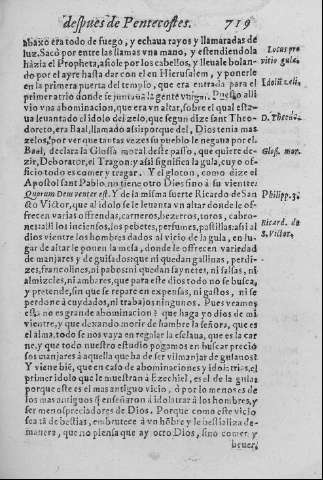 despues de Pentecostes. 719
abaxo era todo de fuego, y echaua rayos y llamaradas de
luz. Sacò por entre las llamas vna mano, y estendiendola
házia el Propheta, asiole por los cabellos, y lleuale bolan-
do por el ayre hasta dar con el en Hierusalem, y ponerle
en la primera puerta del templo, que era entrada para el
primer atrio donde se juntaua la gente vulgar. Puesto alli
vio vna abominacion, que era vn altar, sobre el qual esta-
ua leuantado el idolo del zelo, que segun dize sant Theo-
doreto, era Baal, llamado assi porque del, Dios tenia mas
zelos, por ver que tantas vezes su pueblo le negaua por el.
Baal, declara la Glossa moral deste passo, que quiere de-
zir, Deborator, el Tragon: y assi significa la gula, cuyo of-
ficio todo es comer y tragar. Y el gloton, como dize el
Apostol sant Pablo, no tiene otro Dios sino a su vientre:
Quorum Deus venter est. Y de la misma suerte Ricardo de San
cto Victor, que al idolo se le leuanta vn altar donde le of-
frecen varias offrendas, carneros, bezerros, toros, cabro-
nes: alli los inciensos, los pebetes, perfumes, pastillos: assi al
dios vientre los hombres dados al vicio de la gula, en lu-
gar de altar le ponen la mesa, donde le offrecen variedad
de manjares y de guisados: que ni quedan gallinas, perdi-
zes, francolines, ni pabos: ni quedan saynetes, ni salsas, ni
almizcles, ni ambares, que para este dios todo no se busca,
y pretende, sin que se repare en expensas, ni gastos, ni se
perdone à cuydados, ni trabajos ningunos. Pues veamos
esta no es grande abominacion? que haga yo dios de mi
vientre, y que dexando morir de hambre la señora, que es
el alma, todo se nos vaya en regalar la esclaua, que es la car
ne, y que todo nuestro estudio pogamos en buscar precio
sos manjares à aquella que ha de ser vil manjar de gusanos?
Y viene biē, que en caso de abominaciones y idolatrias, el
primer idolo que le muestran à Ezechiel, es el de la gula:
porque este es el mas antiguo vicio, ò por lo menos es de
los mas antiguos q̃ enseñaron à idolatrar à los hombres, y
ser menospreciadores de Dios. Porque como este vicio
sea tā de bestias, embrutece à vn hōbre y le bestializa de-
manera, que no piensa que ay otro Dios, sino comer y
beuer,
Locus pro
vitio gulæ.
Idolū zeli.
D. Theod.
Glos. mor.
Philipp. 3.
Ricard. de
S. Victor.